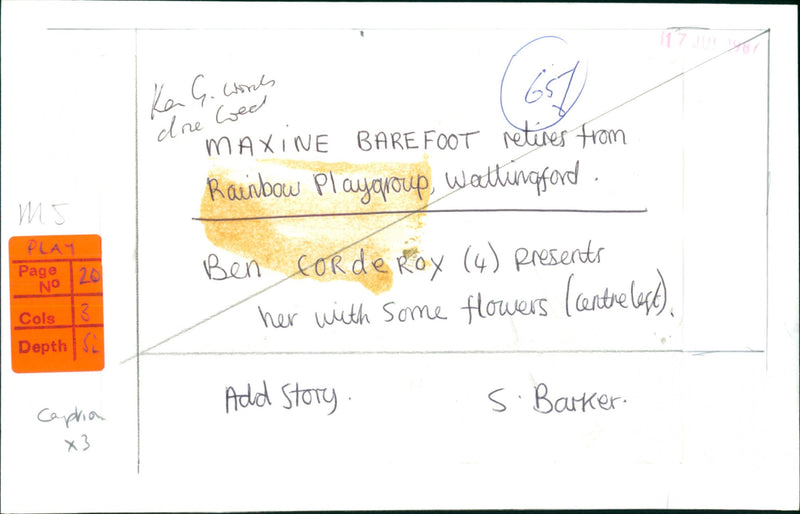 17 JUL 1987
657
Ken G. words
done Wed
MAXINE BAREFOOT retires from
Rainbow Playgroup, Wallingford.
Ben CORdeROY (4) presents
her with some flowers (centre left).
MS
PLAY
Page No 20
Cols 3
Depth
Caption
x3
Add Story.
S. Barker.